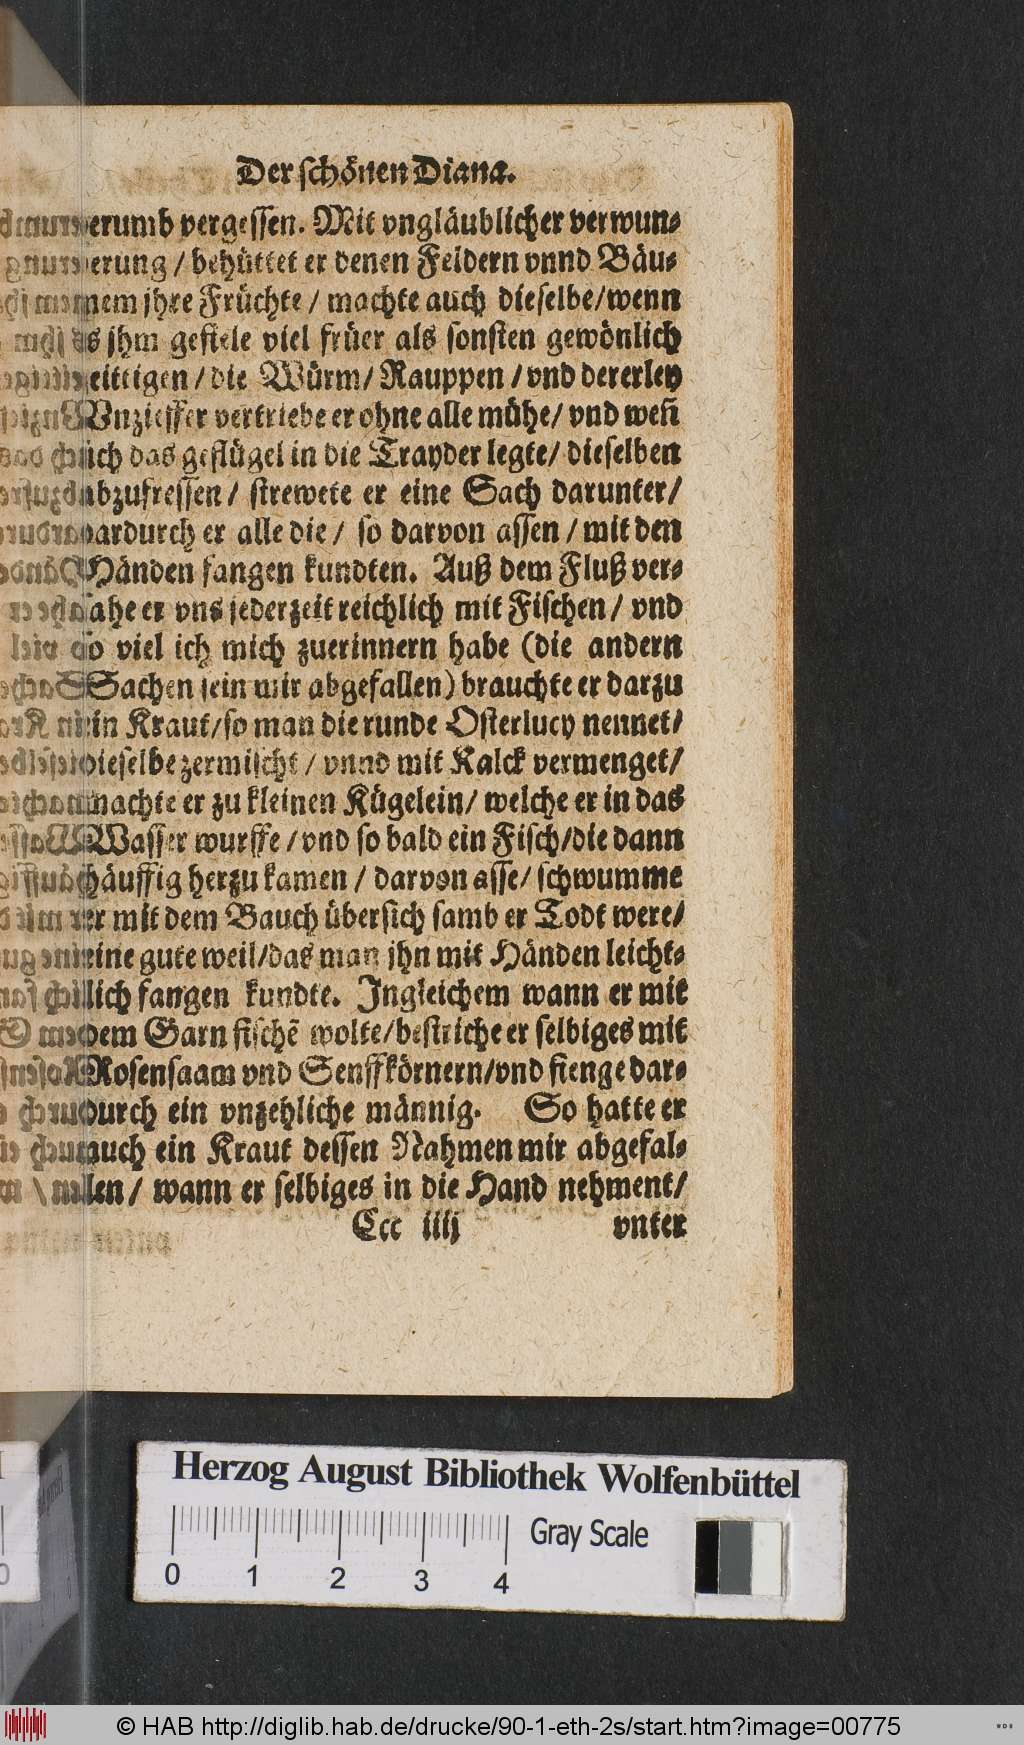 Der schönen Diana.
erumb vergessen. Mit vngläublicher verwun-
erung / behüttet er denen Feldern vnnd Bäu-
nem jhre Früchte / machte auch dieselbe/wenn
es jhm gefiele viel früer als sonsten gewönlich
zeittigen / die Würm/ Rauppen / vnd dererley
Vnzieffer vertriebe er ohne alle mühe/ vnd weñ
sich das geflügel in die Trayder legte/ dieselben
abzufressen / strewete er eine Sach darunter/
dardurch er alle die / so darvon assen / mit den
Händen fangen kundten. Auß dem Fluß ver-
sahe er vns jederzeit reichlich mit Fischen / vnd
so viel ich mich zuerinnern habe (die andern
Sachen sein mir abgefallen) brauchte er darzu
ein Kraut/so man die runde Osterlucy nennet/
dieselbe zermischt / vnnd mit Kalck vermenget/
machte er zu kleinen Kügelein/ welche er in das
Wasser wurffe / vnd so bald ein Fisch/die dann
häuffig herzu kamen / darvon asse/ schwumme
er mit dem Bauch übersich samb er Todt were/
eine gute weil/das man jhn mit Händen leicht-
lich fangen kundte. Jngleichem wann er mit
dem Garn fischẽ wolte/bestriche er selbiges mit
Rosensaam vnd Senffkörnern/vnd fienge dar-
durch ein vnzehliche männig. So hatte er
auch ein Kraut dessen Nahmen mir abgefal-
len / wann er selbiges in die Hand nehment/
Ccc iiij vnter
Herzog August Bibliothek Wolfenbüttel
Gray Scale
0 1 2 3 4
© HAB http://diglib.hab.de/drucke/90-1-eth-2s/start.htm?image=00775